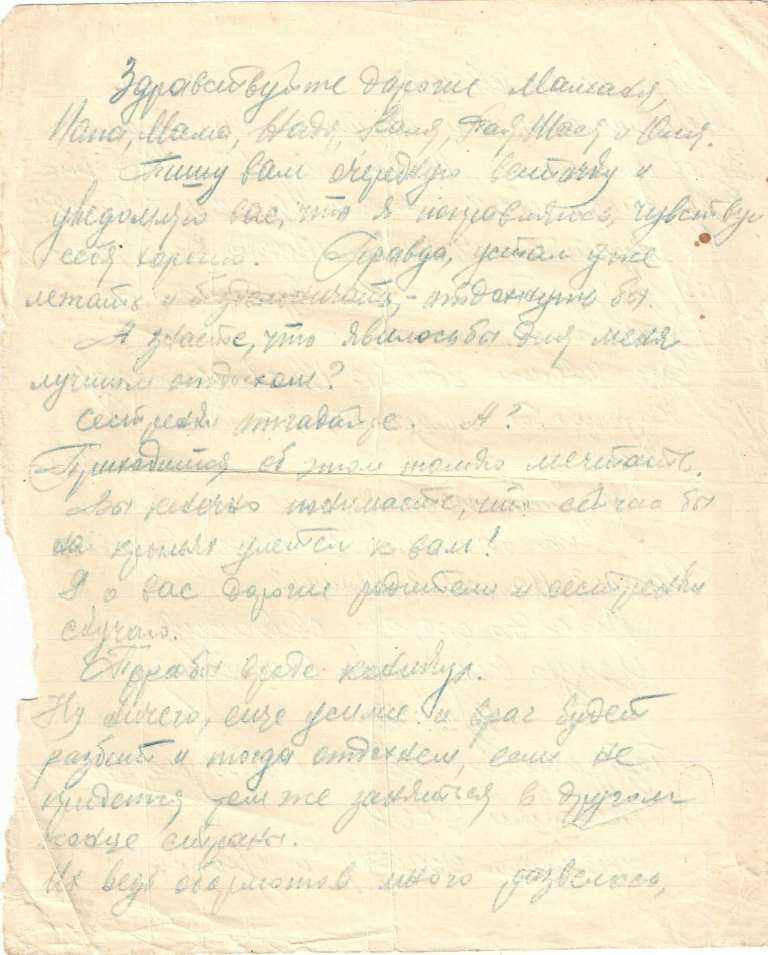 Здравствуйте дорогие Маманя,
Папа, Мама, Надя, Коля, Рая, Тася и Юля.
Пишу вам очередную весточку и
уведомляю вас, что я поправляюсь, чувствую
себя хорошо. Правда, устал уже
лежать и - отдохнуть бы.
А знаете, что явилось бы для меня
лучшим отдыхом?
Сестренки отгадайте. А?
Приходится об этом только мечтать.
Вы конечно понимаете, что сейчас бы
на крыльях улетел к вам!
Я о вас дорогие родители и сестренки
скучаю.
Пора бы вроде
Ну ничего, еще усилие и враг будет
разбит и тогда отдохнем, если не
придется тем же заняться в другом
конце страны.
Их ведь обормотов много развелось,